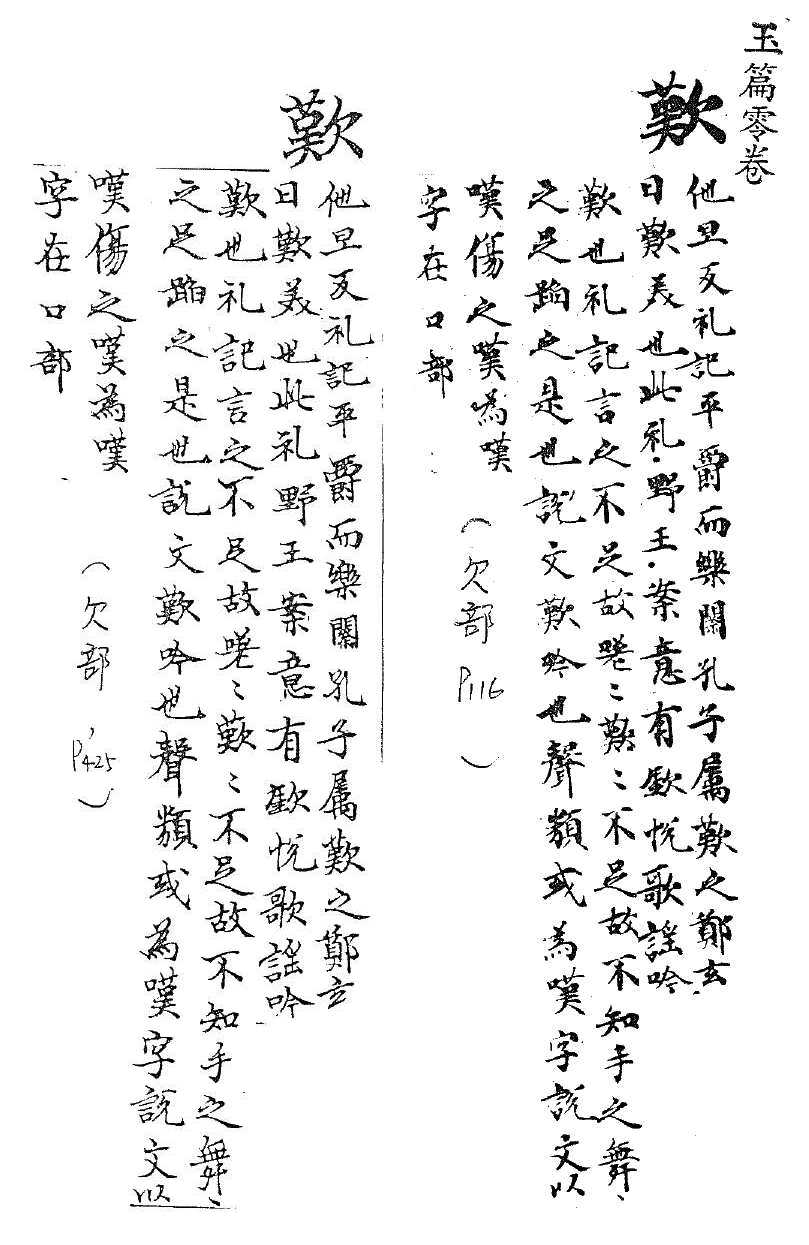 玉篇零卷
歎
他旦反礼記平爵而樂闋孔子屬歎之鄭玄
曰歎美也此礼野王案意有歡悅歌謡吟
歎也礼記言之不足故嗟〻歎〻不足故不知手之舞〻
之足蹈之是也説文歎吟也聲類或為嘆字説文以
嘆傷之嘆為嘆
字在口部
（欠部 P116）
歎
他旦反礼記平爵而樂闋孔子屬歎之鄭玄
曰歎美也此礼野王案意有歡悅歌謡吟
歎也礼記言之不足故嗟〻歎〻不足故不知手之舞〻
之足蹈之是也説文歎吟也聲類或為嘆字説文以
嘆傷之嘆為嘆
字在口部
（欠部，P425）